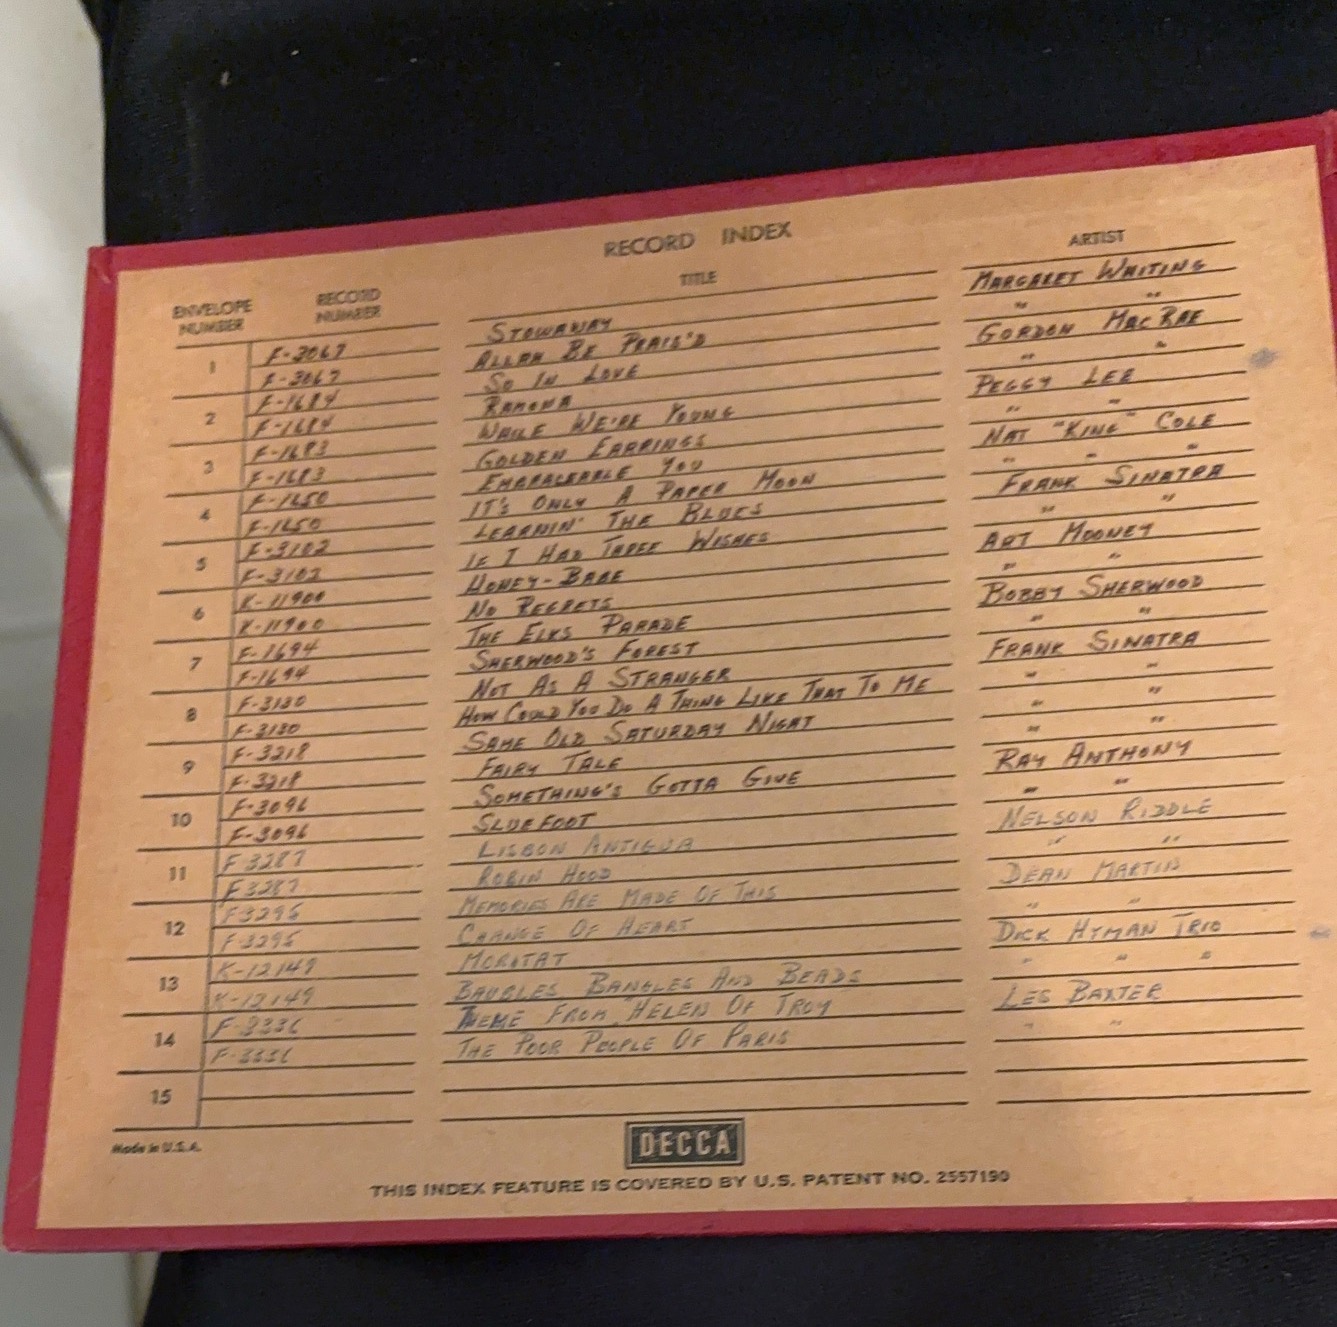 RECORD INDEX
ENVELOPE NUMBER RECORD NUMBER TITLE ARTIST
1 F-3067 STOWAWAY MARGARET WHITING
F-3067 ALLAH BE PRAIS'D " "
2 F-1684 SO IN LOVE GORDON MACRAE
F-1684 RAMONA " "
3 F-1683 WHILE WE'RE YOUNG PEGGY LEE
F-1683 GOLDEN EARRINGS " "
4 F-1650 EMBRACEABLE YOU NAT "KING" COLE
F-1650 IT'S ONLY A PAPER MOON " " "
5 F-3102 LEARNIN' THE BLUES FRANK SINATRA
F-3102 IF I HAD THREE WISHES " "
6 K-11900 HONEY-BABE ART MOONEY
K-11900 NO REGRETS " "
7 F-1694 THE ELKS PARADE BOBBY SHERWOOD
F-1694 SHERWOOD'S FOREST " "
8 F-3130 NOT AS A STRANGER FRANK SINATRA
F-3130 HOW COULD YOU DO A THING LIKE THAT TO ME " "
9 F-3218 SAME OLD SATURDAY NIGHT " "
F-3218 FAIRY TALE " "
10 F-3096 SOMETHING'S GOTTA GIVE RAY ANTHONY
F-3096 SLUEFOOT " "
11 F-3287 LISBON ANTIGUA NELSON RIDDLE
F-3287 ROBIN HOOD " "
12 F-3295 MEMORIES ARE MADE OF THIS DEAN MARTIN
F-3295 CHANGE OF HEART " "
13 K-12149 MORITAT DICK HYMAN TRIO
K-12149 BAUBLES BANGLES AND BEADS " " "
14 F-3336 THEME FROM "HELEN OF TROY LES BAXTER
F-3336 THE POOR PEOPLE OF PARIS " "
15
Made in U.S.A.
DECCA
THIS INDEX FEATURE IS COVERED BY U.S. PATENT NO. 2557190